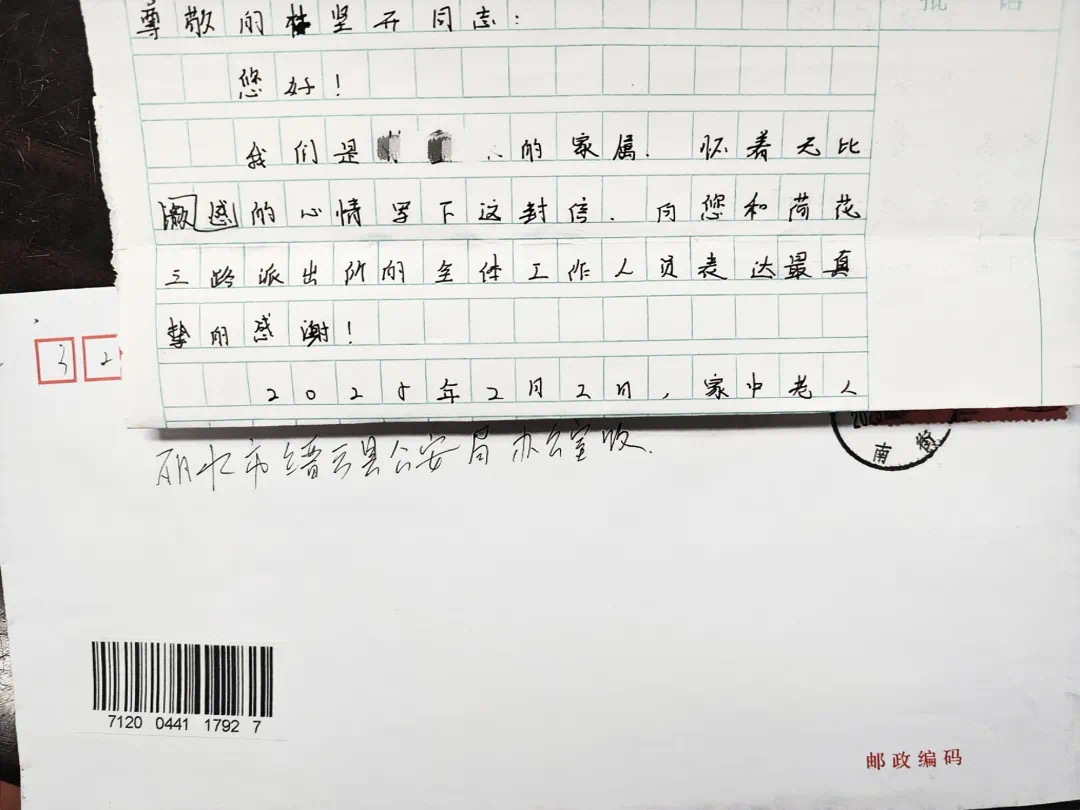 批 语
尊敬的杜坚开同志：
您好！
我们是 的家属．怀着无比
激感的心情写下这封信．向您和荷花
三路派出所的全体工作人员表达最真
挚的感谢！
2025年2月2日，家中老人
3 2
丽水市缙云县公安局办公室收．
南 街
7120 0441 1792 7
邮政编码